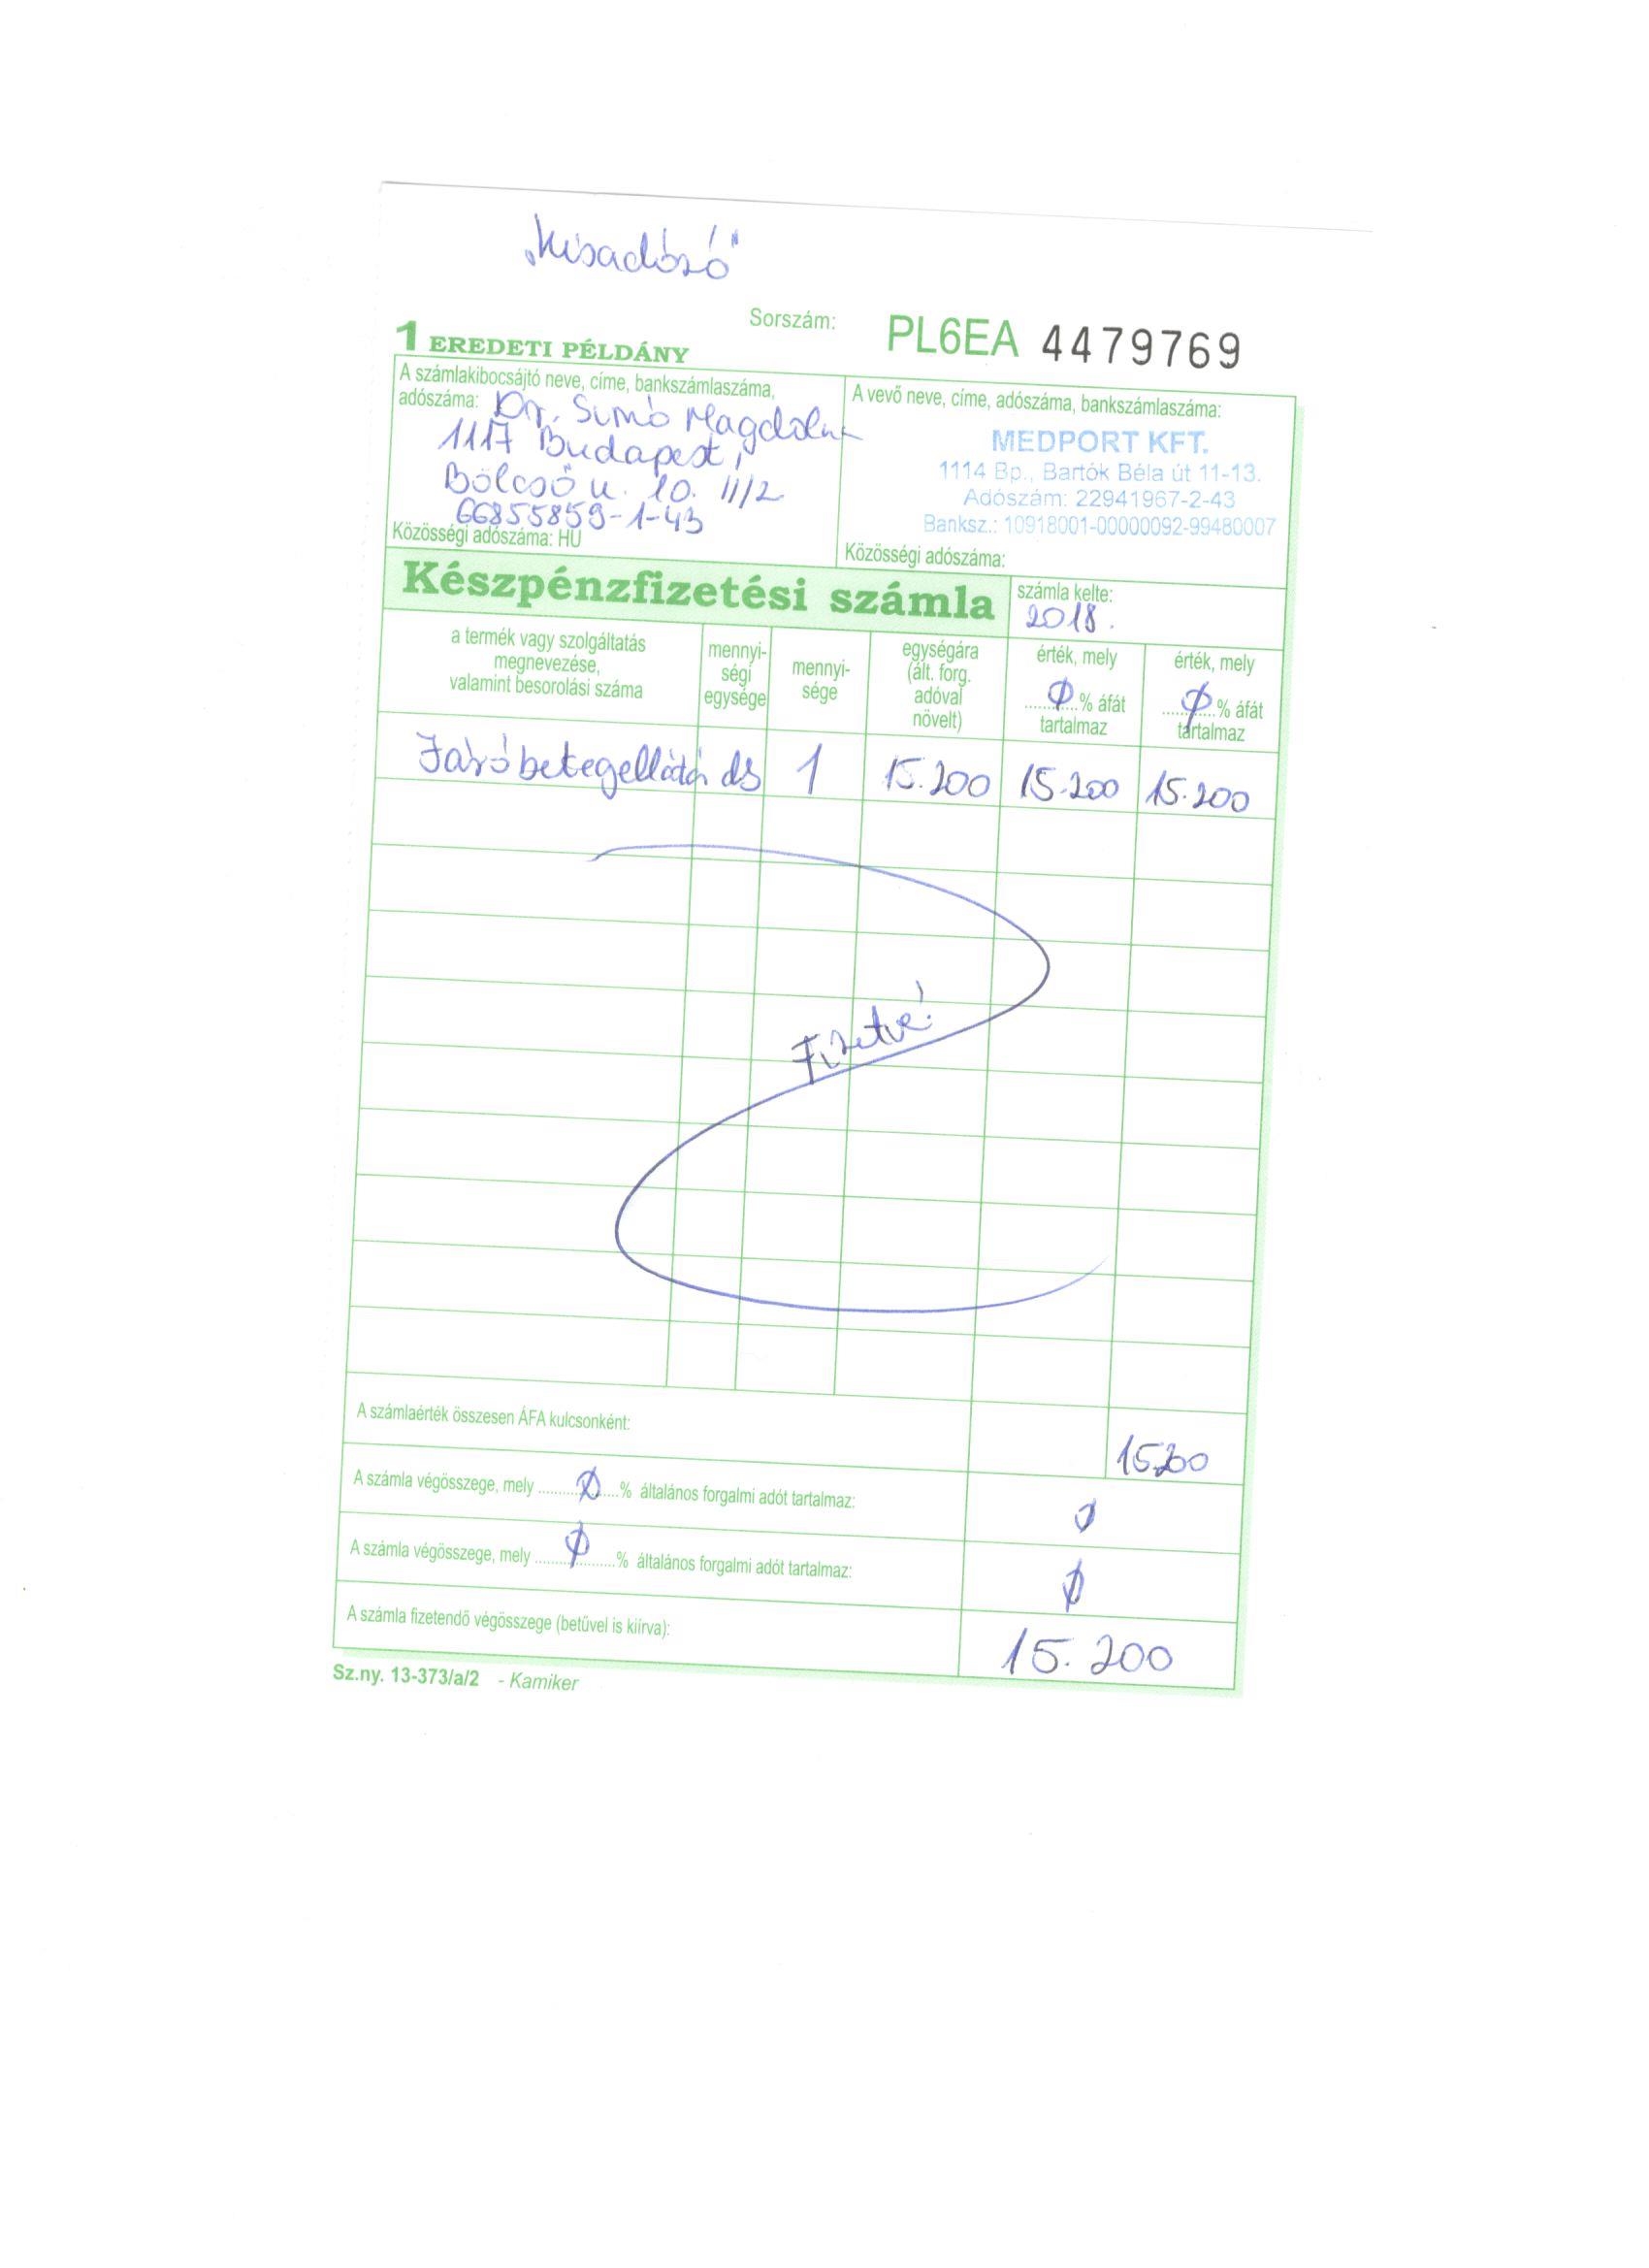 „Kisadózó"
Sorszám: PL6EA 4479769
1 EREDETI PÉLDÁNY
A számlakibocsájtó neve, címe, bankszámlaszáma,
adószáma: Dr. Simó Magdolna
1117 Budapest,
Bölcső u. 10. II/2
66855859-1-43
Közösségi adószáma: HU
A vevő neve, címe, adószáma, bankszámlaszáma:
MEDPORT KFT.
1114 Bp., Bartók Béla út 11-13.
Adószám: 22941967-2-43
Banksz.: 10918001-00000092-99480007
Közösségi adószáma:
Készpénzfizetési számla
számla kelte:
2018.
a termék vagy szolgáltatás
megnevezése,
valamint besorolási száma
mennyi-
ségi
egysége
mennyi-
sége
egységára
(ált. forg.
adóval
növelt)
érték, mely
0 % áfát
tartalmaz
érték, mely
0 % áfát
tartalmaz
Járóbetegellátás db 1 15.200 15.200 15.200
Fizetve!
A számlaérték összesen ÁFA kulcsonként: 15200
A számla végösszege, mely 0 % általános forgalmi adót tartalmaz: 0
A számla végösszege, mely 0 % általános forgalmi adót tartalmaz: 0
A számla fizetendő végösszege (betűvel is kiírva): 15.200
Sz.ny. 13-373/a/2 - Kamiker